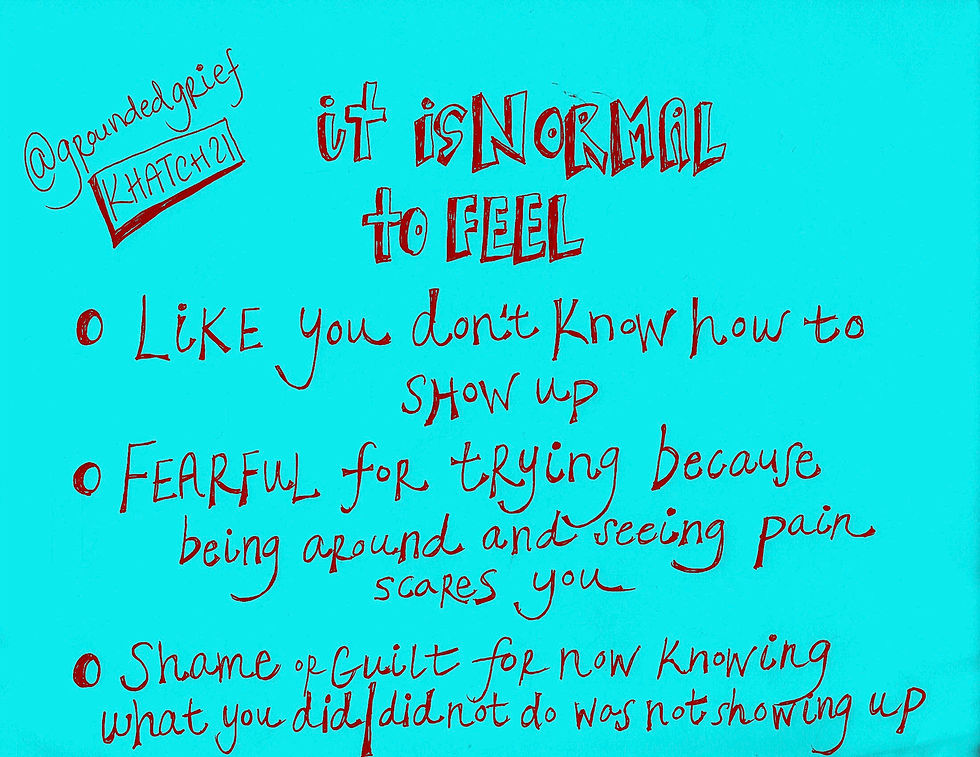 @groundedgrief
KHATCH21
it is NORMAL
to FEEL
LiKE you don't know how to
SHOW up
FEARFUL for trying because
being around and seeing pain
scares you
Shame or Guilt for now knowing
what you did/did not do was not showing up